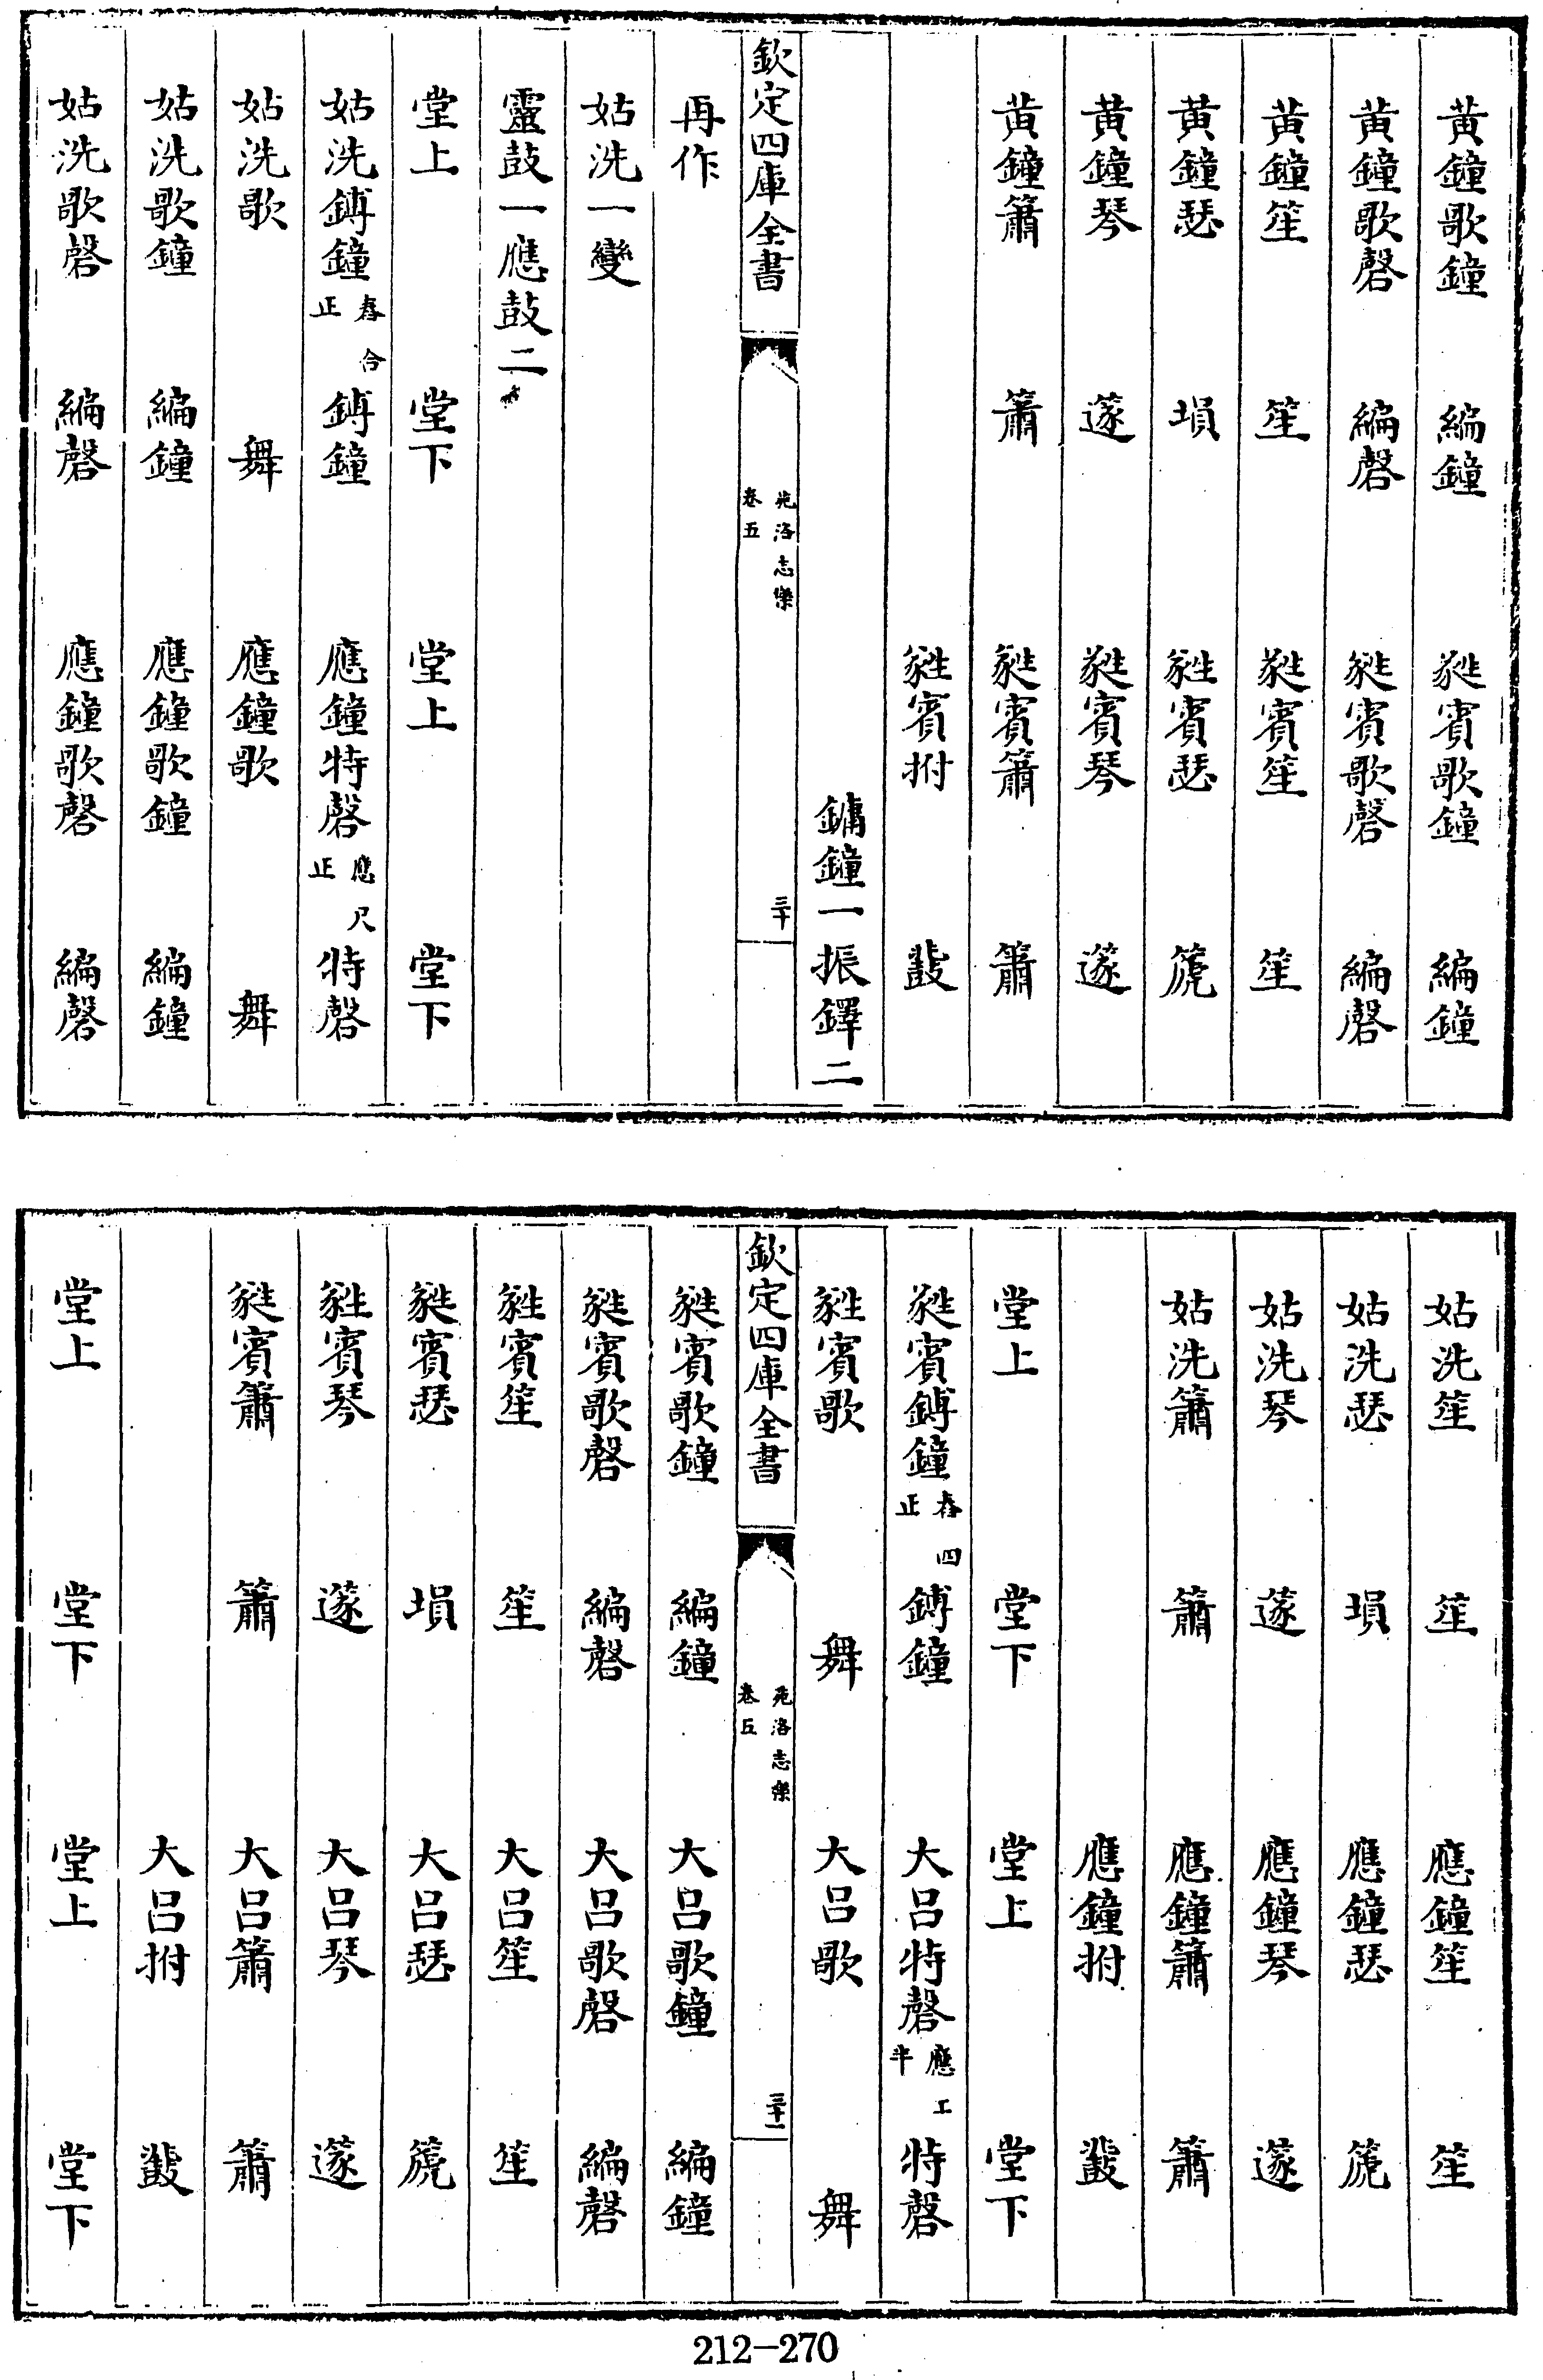 黃鐘歌鐘　編鐘　蕤賓歌鐘　編鐘
黃鐘歌磬　編磬　蕤賓歌磬　編磬
黃鐘笙　笙　蕤賓笙　笙
黃鐘瑟　塤　蕤賓瑟　篪
黃鐘琴　篴　蕤賓琴　篴
黃鐘簫　簫　蕤賓簫　簫
蕤賓拊　鼗
鏞鐘一振鐸二
欽定四庫全書　苑洛志樂　卷五　三十
再作
姑洗一變
靈鼓一應鼓二
堂上　堂下　堂上　堂下
姑洗鎛鐘 春合正　鎛鐘　應鐘特磬 應尺正　特磬
姑洗歌　舞　應鐘歌　舞
姑洗歌鐘　編鐘　應鐘歌鐘　編鐘
姑洗歌磬　編磬　應鐘歌磬　編磬
姑洗笙　笙　應鐘笙　笙
姑洗瑟　塤　應鐘瑟　篪
姑洗琴　篴　應鐘琴　篴
姑洗簫　簫　應鐘簫　簫
應鐘拊　鼗
堂上　堂下　堂上　堂下
蕤賓鎛鐘 春四正　鎛鐘　大呂特磬 應工半　特磬
蕤賓歌　舞　大呂歌　舞
欽定四庫全書　苑洛志樂　卷五　三十一
蕤賓歌鐘　編鐘　大呂歌鐘　編鐘
蕤賓歌磬　編磬　大呂歌磬　編磬
蕤賓笙　笙　大呂笙　笙
蕤賓瑟　塤　大呂瑟　篪
蕤賓琴　篴　大呂琴　篴
蕤賓簫　簫　大呂簫　簫
大呂拊　鼗
堂上　堂下　堂上　堂下
212-270